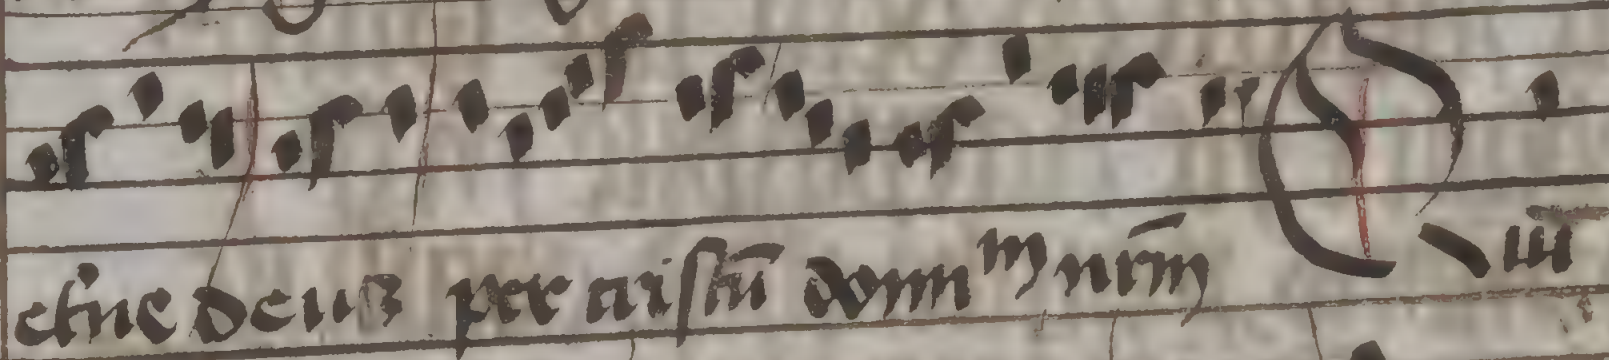 et'ne deus per cristū domin m nr̄m Qui